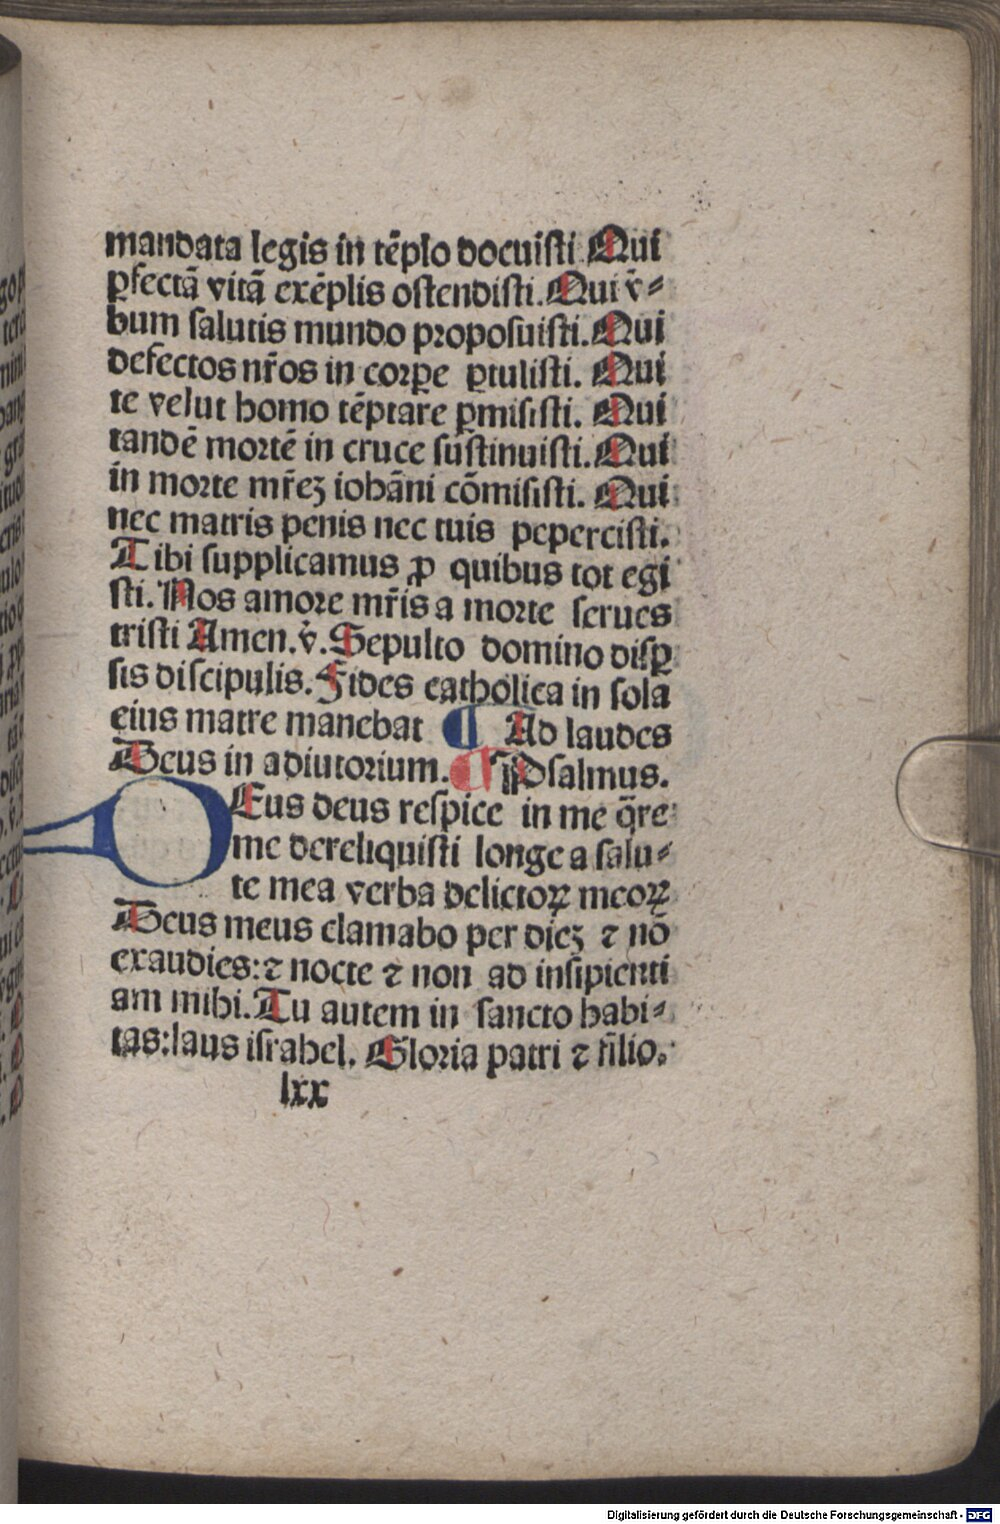 mandata legis in tēplo docuisti Qui
ꝑfectā vitā exēplis ostendisti. Qui v̄⸗
bum salutis mundo proposuisti. Qui
defectos nr̄os in corꝑe ꝑtulisti. Qui
te velut homo tēptare ꝑmisisti. Qui
tandē mortē in cruce sustinuisti. Qui
in morte mr̄eꝫ iohāni cōmisisti. Qui
nec matris penis nec tuis pepercisti.
Tibi supplicamus ꝓ quibus tot egi
sti. Nos amore mr̄is a morte serues
tristi Amen. v̄. Sepulto domino disꝑ
sis discipulis. Fides catholica in sola
eius matre manebat ¶ Ad laudes
Deus in adiutorium. ¶ Psalmus.
DEus deus respice in me q̄re
me dereliquisti longe a salu⸗
te mea verba delictoꝝ meoꝝ
Deus meus clamabo per dieꝫ ⁊ nō
exaudies: ⁊ nocte ⁊ non ad insipienti
am mihi. Tu autem in sancto habi⸗
tas: laus israhel. Gloria patri ⁊ filio.
lxx
Digitalisierung gefördert durch die Deutsche Forschungsgemeinschaft - DFG